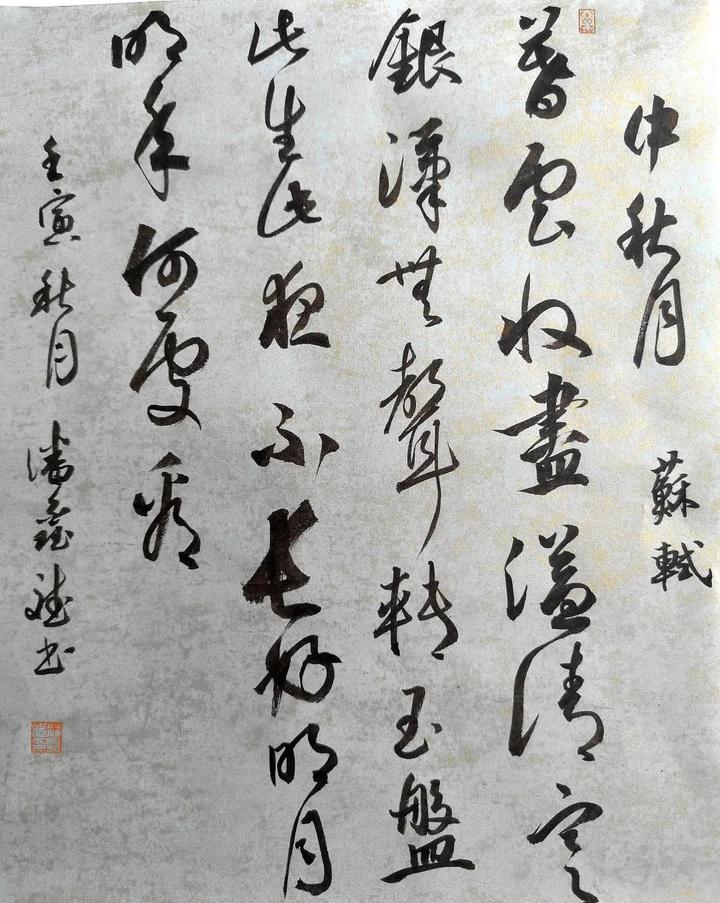 中秋月 蘇軾
暮雲收盡溢清寒
銀漢無聲轉玉盤
此生此夜不長好明月
明年何處看
壬寅秋月 潘鑫 书